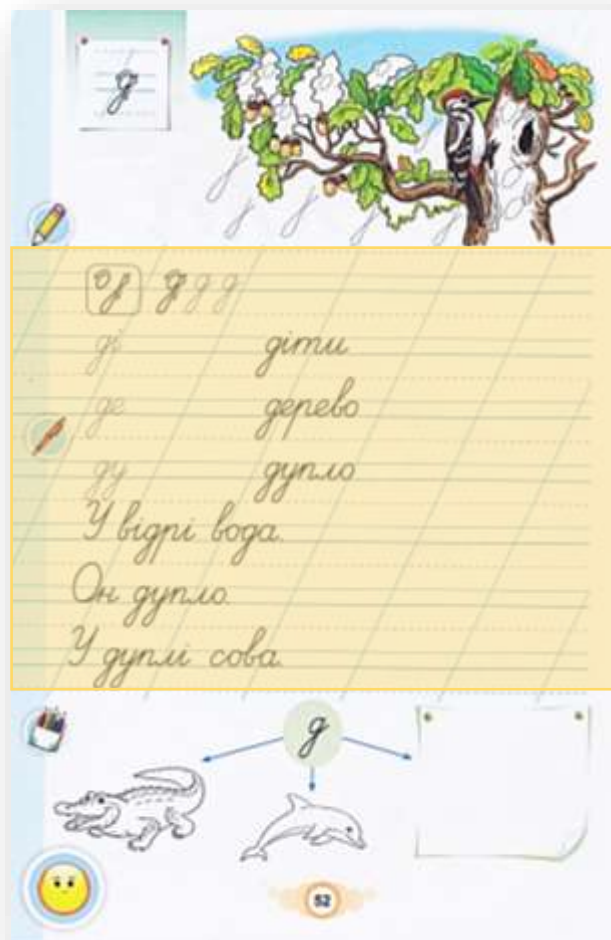 д д д д
ді діти
де дерево
ду дупло
У відрі вода.
Он дупло.
У дуплі сова.
д
52